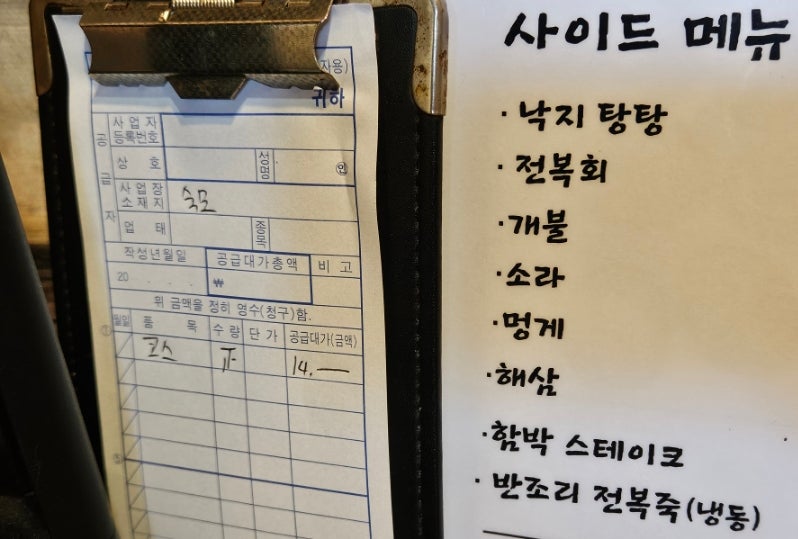 자용)
귀하
공급자
사업자
등록번호
상 호
성명
㊞
사업장
소재지
숙모
업 태
종목
작성년월일
공급대가총액
비 고
20 . . .
₩
위 금액을 정히 영수(청구)함.
월일 품 목 수 량 단 가 공급대가(금액)
①
코스
14.—
⑤
사이드 메뉴
· 낙지 탕탕
· 전복회
· 개불
· 소라
· 멍게
· 해삼
· 함박 스테이크
· 반조리 전복죽(냉동)